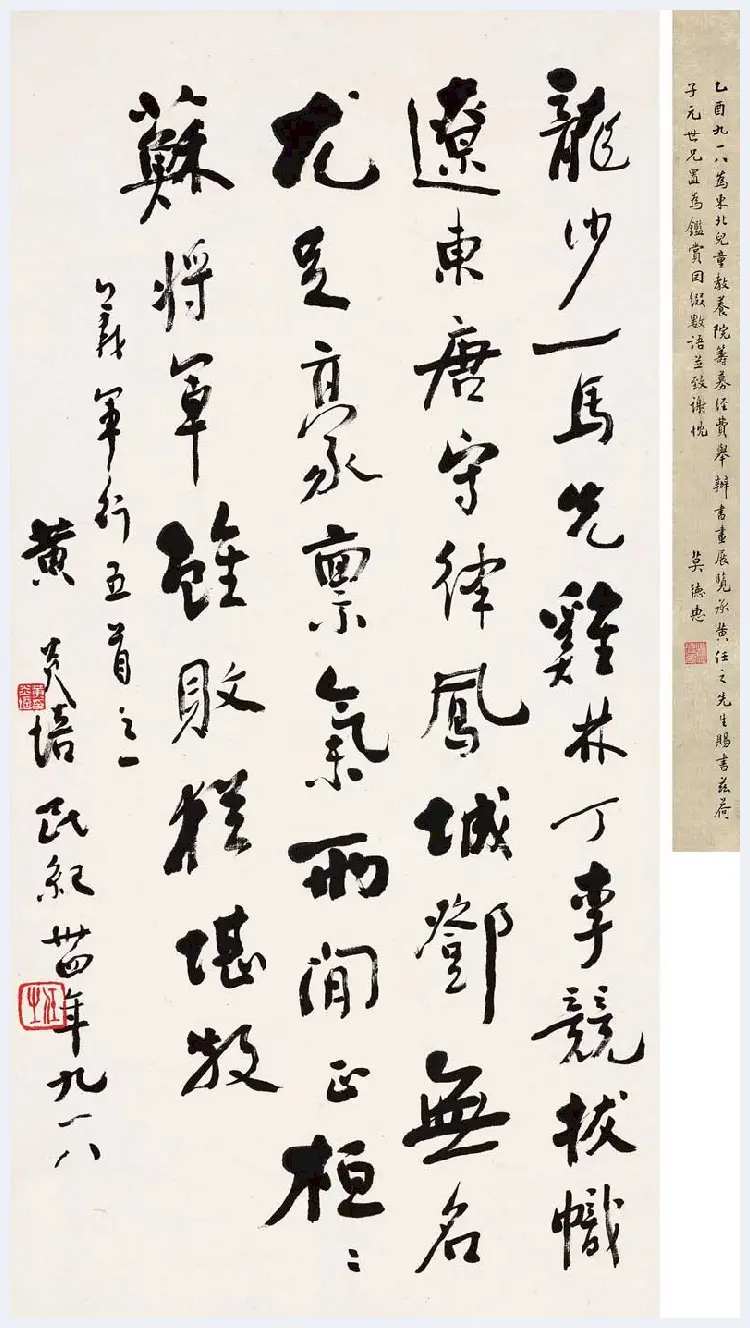 乙酉九一八為東北兒童教養院籌募經費舉辦書畫展覽承黃任之先生賜書茲荷
子元世兄置為鑑賞因綴數語並致謝忱 莫德惠
龍沙一馬先雞林丁李競拔幟
遼東唐守律鳳城鄧無名
尤足豪禀氣兩間正桓〻
蘇將軍雖敗猶堪
義軍行五首之一
黃炎培民紀卅四年九一八
任之